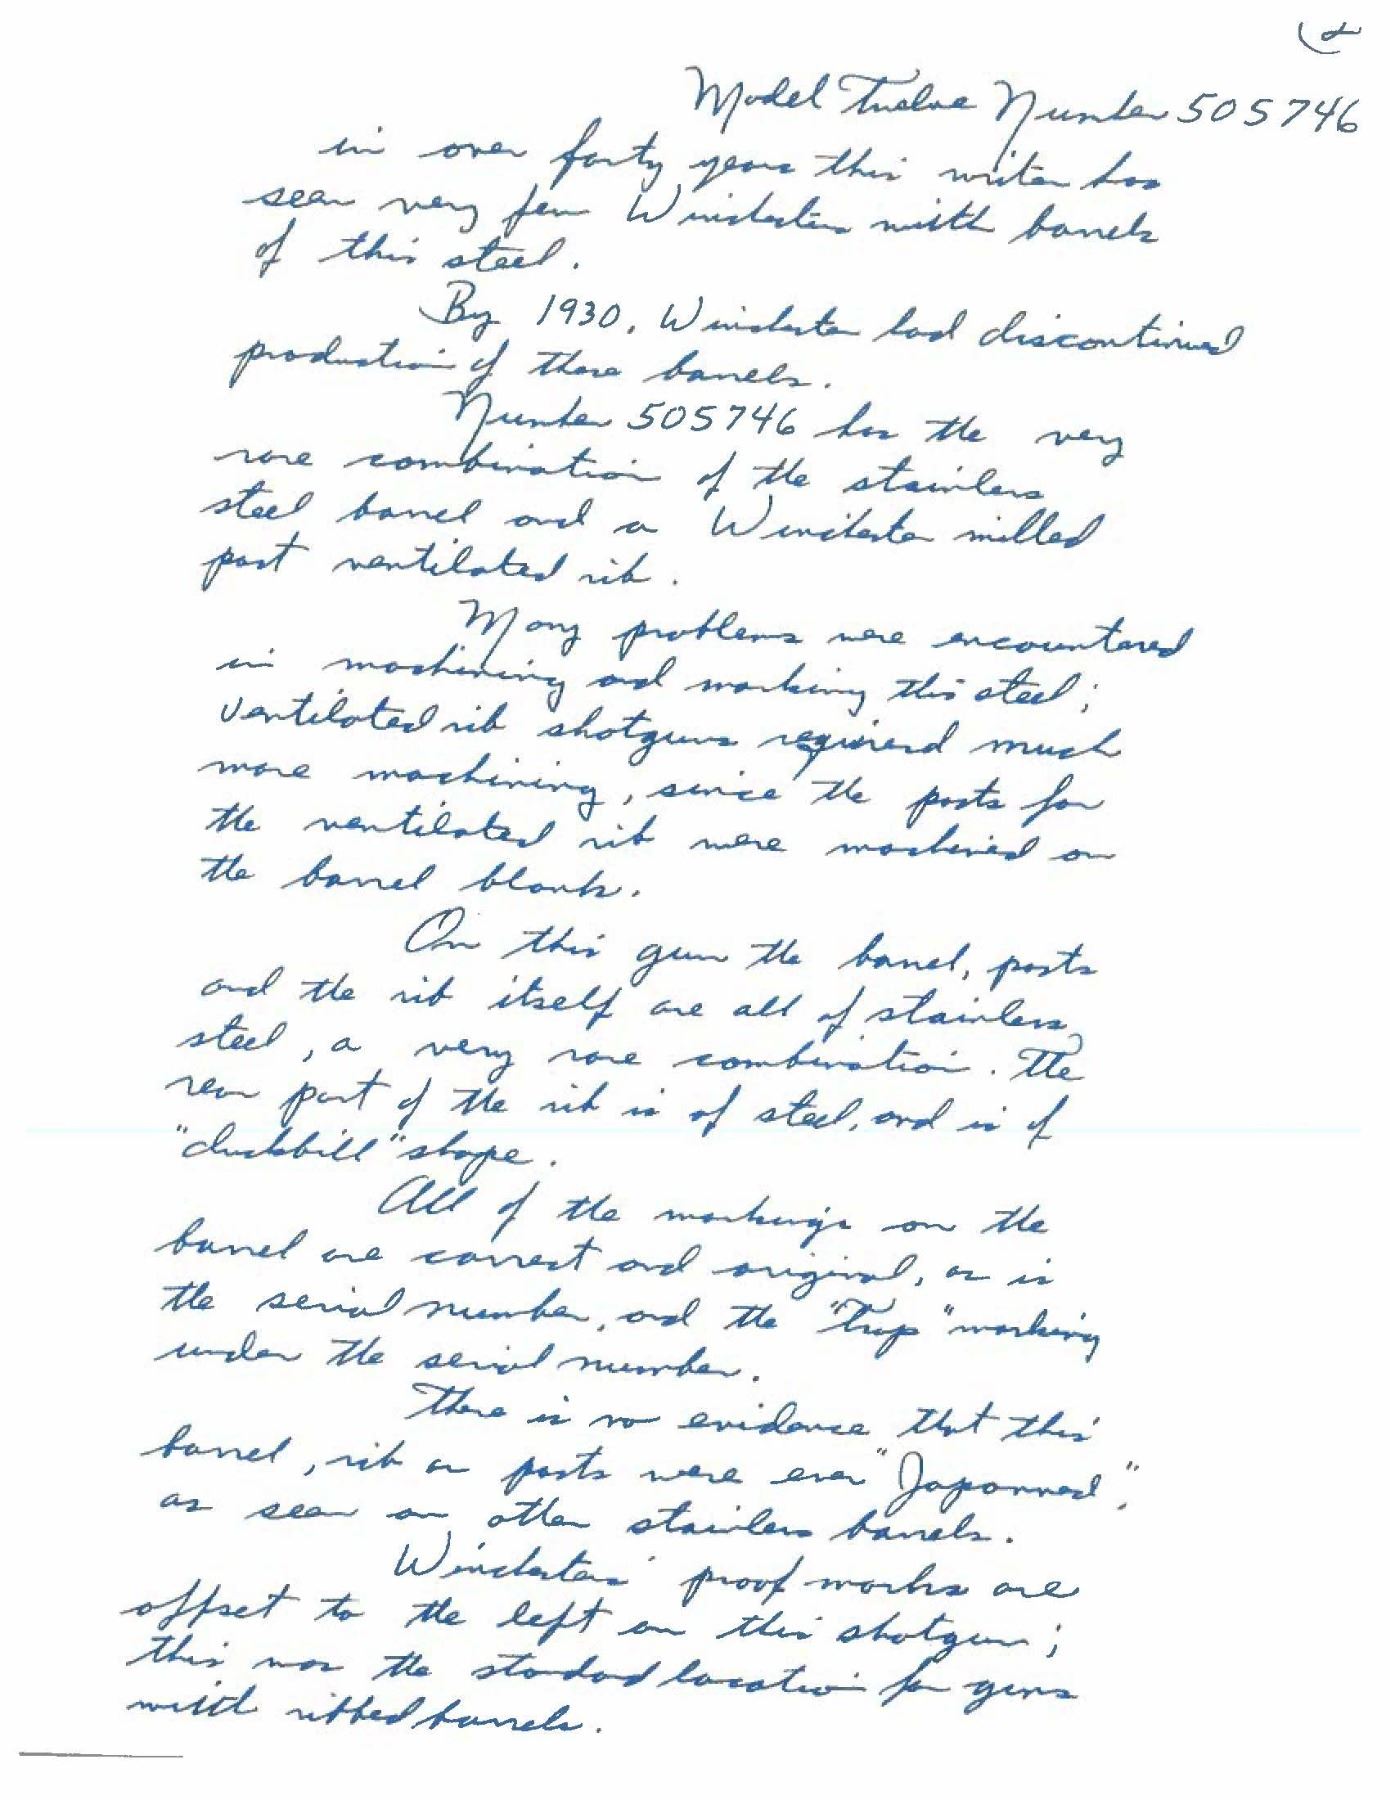 (2
Model Twelve Number 505746
in over forty years this writer has
seen very few Winchesters with barrels
of this steel.
By 1930, Winchester had discontinued
production of these barrels.
Number 505746 has the very
rare combination of the stainless
steel barrel and a Winchester milled
post ventilated rib.
Many problems were encountered
in machining and working this steel;
ventilated rib shotguns required much
more machining, since the posts for
the ventilated rib were machined on
the barrel blank.
On this gun the barrel, posts
and the rib itself are all of stainless
steel, a very rare combination. The
rear part of the rib is of steel, and is of
"duckbill" shape.
All of the markings on the
barrel are correct and original, as is
the serial number, and the "Trap" marking
under the serial number.
There is no evidence that this
barrel, rib or posts were ever "Japanned".
as seen on other stainless barrels.
Winchesters' proof marks are
offset to the left on this shotgun;
this was the standard location for guns
with ribbed barrels.